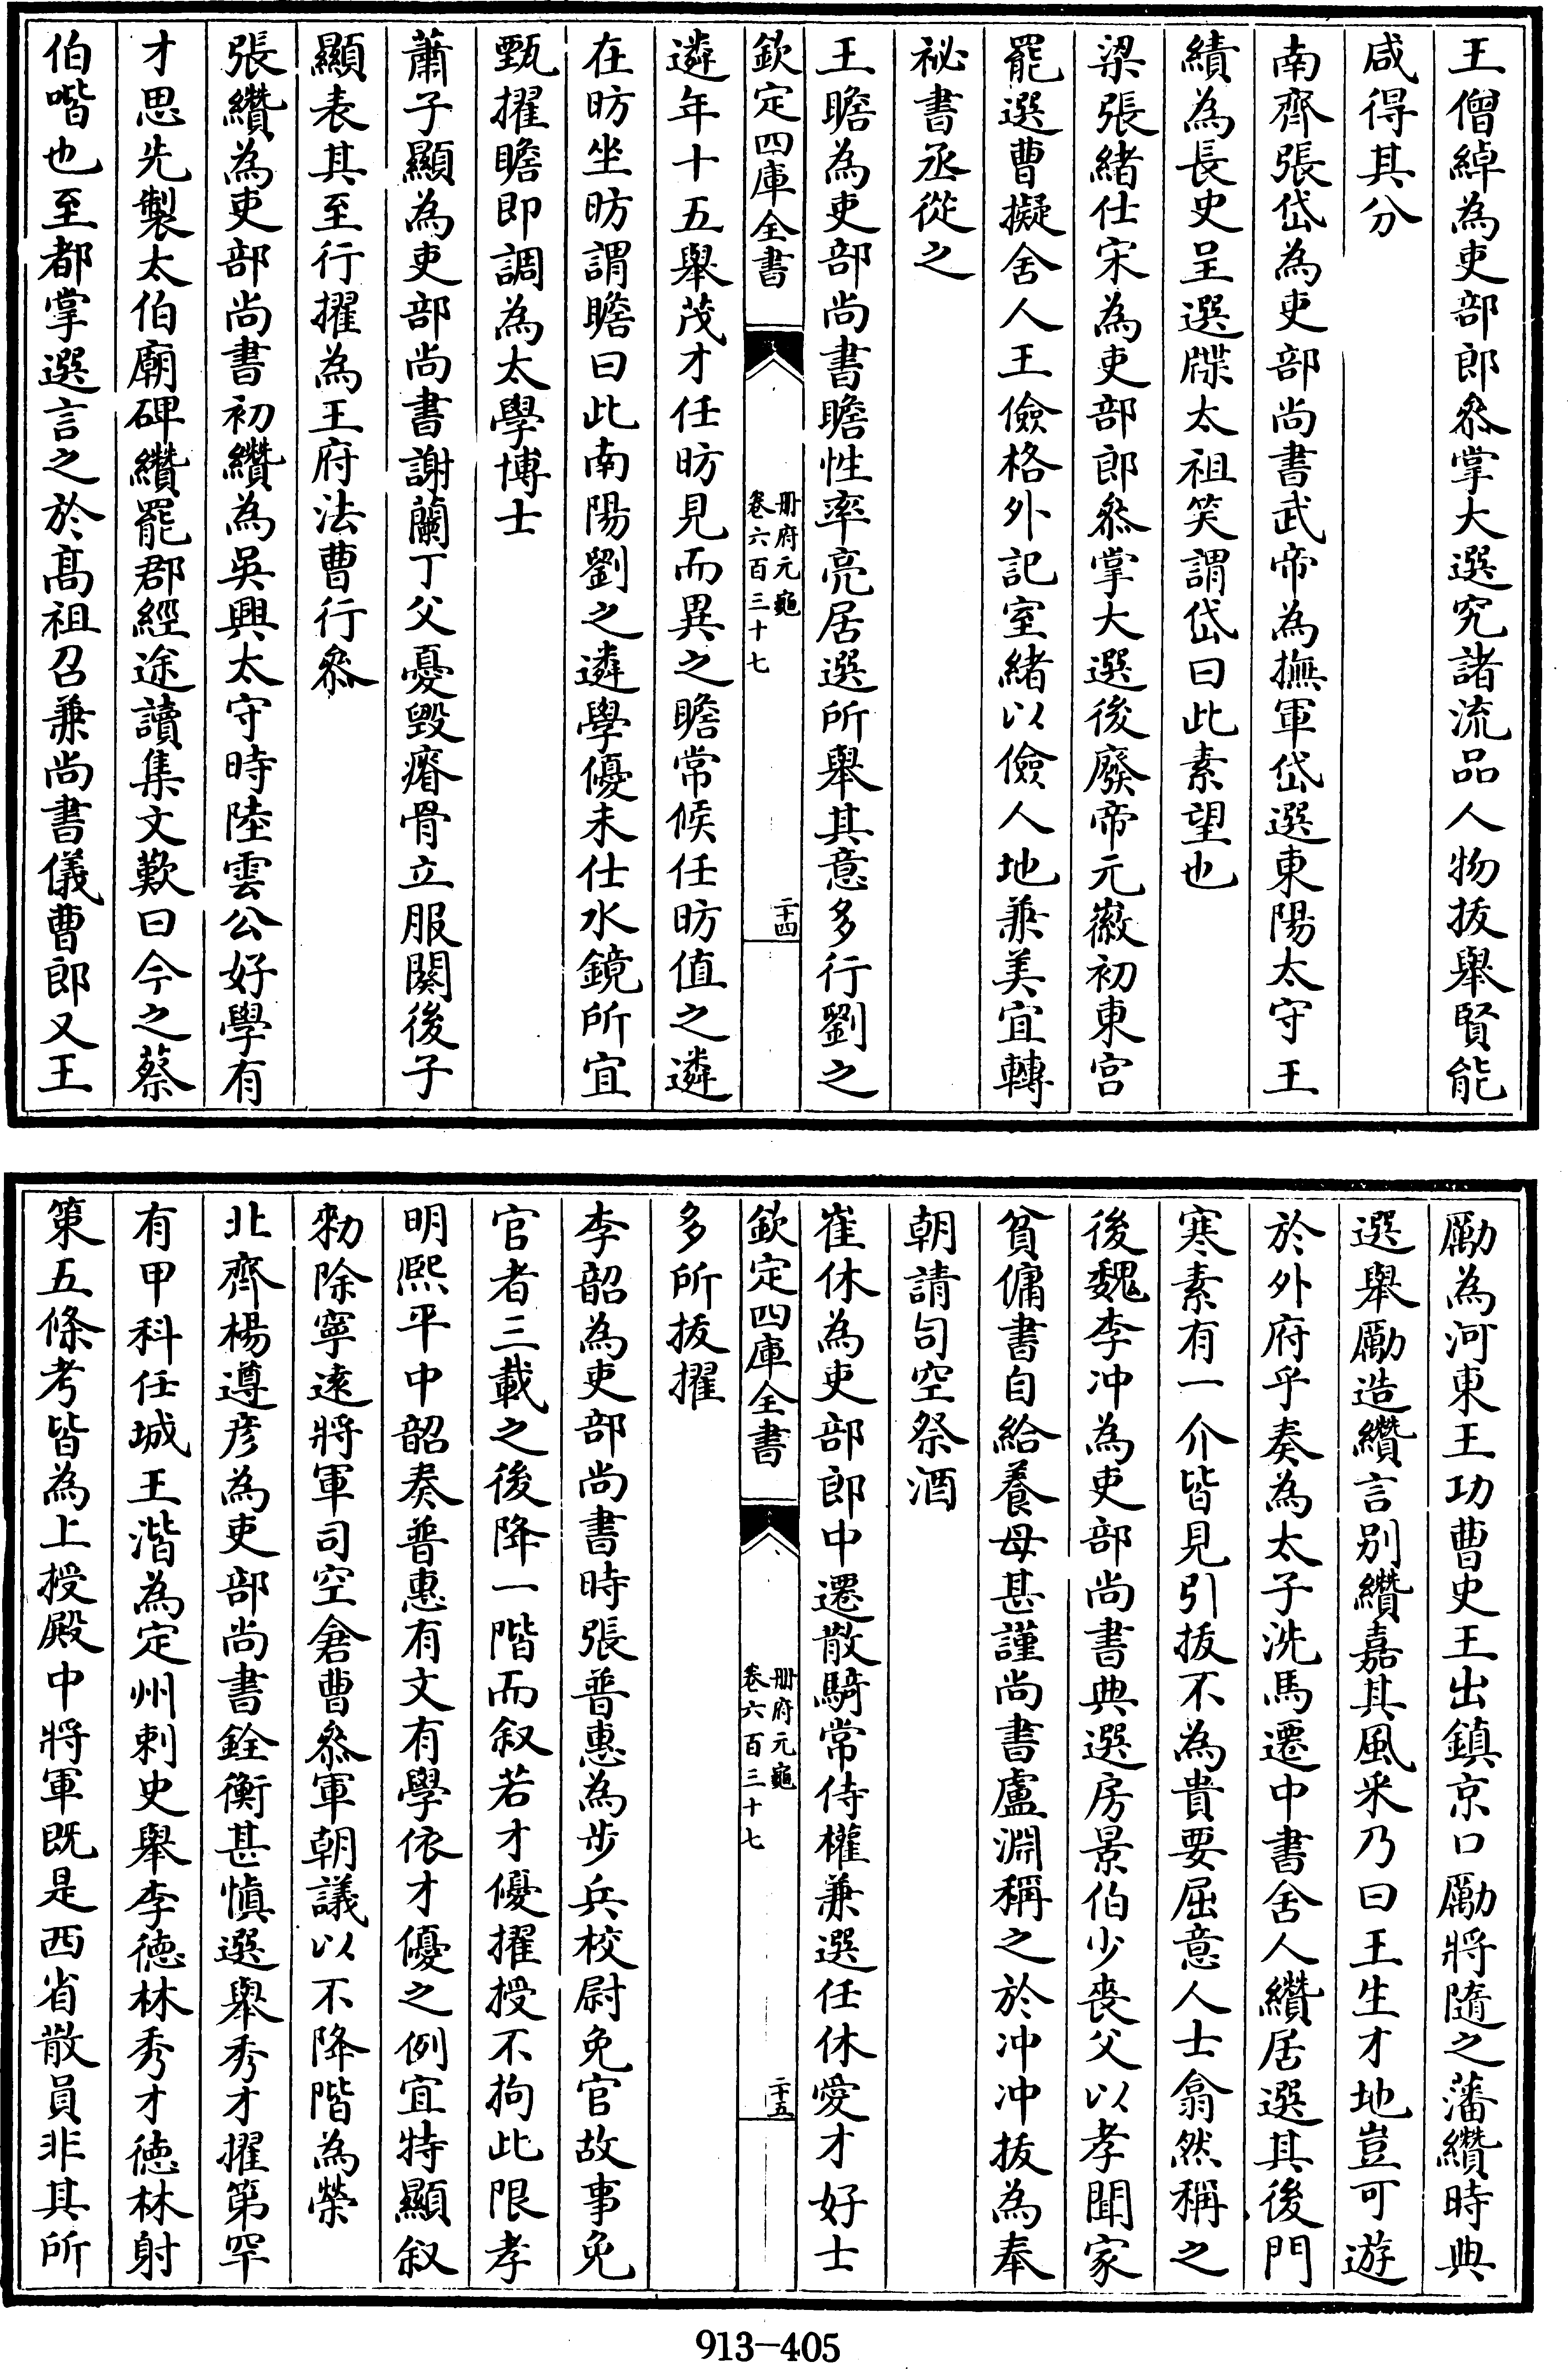 王僧綽為吏部郎叅掌大選究諸流品人物拔舉賢能
咸得其分
南齊張岱為吏部尚書武帝為撫軍岱選東陽太守王
績為長史呈選牒太祖笑謂岱曰此素望也
梁張緒仕宋為吏部郎叅掌大選後廢帝元徽初東宫
罷選曹擬舍人王儉格外記室緒以儉人地兼美宜轉
祕書丞從之
王瞻為吏部尚書瞻性率亮居選所舉其意多行劉之
欽定四庫全書
冊府元龜
卷六百三十七
二十四
遴年十五舉茂才任昉見而異之瞻常候任昉值之遴
在昉坐昉謂瞻曰此南陽劉之遴學優未仕水鏡所宜
甄擢瞻即調為太學博士
蕭子顯為吏部尚書謝蘭丁父憂毀瘠骨立服闋後子
顯表其至行擢為王府法曹行叅
張纘為吏部尚書初纘為吳興太守時陸雲公好學有
才思先製太伯廟碑纘罷郡經途讀集文歎曰今之蔡
伯喈也至都掌選言之於髙祖召兼尚書儀曹郎又王
勵為河東王功曹史王出鎮京口勵將隨之藩纘時典
選舉勵造纘言别纘嘉其風采乃曰王生才地豈可遊
於外府乎奏為太子洗馬遷中書舍人纘居選其後門
寒素有一介皆見引拔不為貴要屈意人士翕然稱之
後魏李冲為吏部尚書典選房景伯少喪父以孝聞家
貧傭書自給養母甚謹尚書盧淵稱之於冲冲拔為奉
朝請司空祭酒
崔休為吏部郎中遷散騎常侍權兼選任休愛才好士
欽定四庫全書
冊府元龜
卷六百三十七
二十五
多所拔擢
李韶為吏部尚書時張普惠為步兵校尉免官故事免
官者三載之後降一階而叙若才優擢授不拘此限孝
明熙平中韶奏普惠有文有學依才優之例宜特顯叙
勑除寧逺將軍司空倉曹叅軍朝議以不降階為榮
北齊楊遵彦為吏部尚書銓衡甚慎選舉秀才擢第罕
有甲科任城王湝為定州刺史舉李徳林秀才徳林射
策五條考皆為上授殿中將軍既是西省散員非其所
913-405